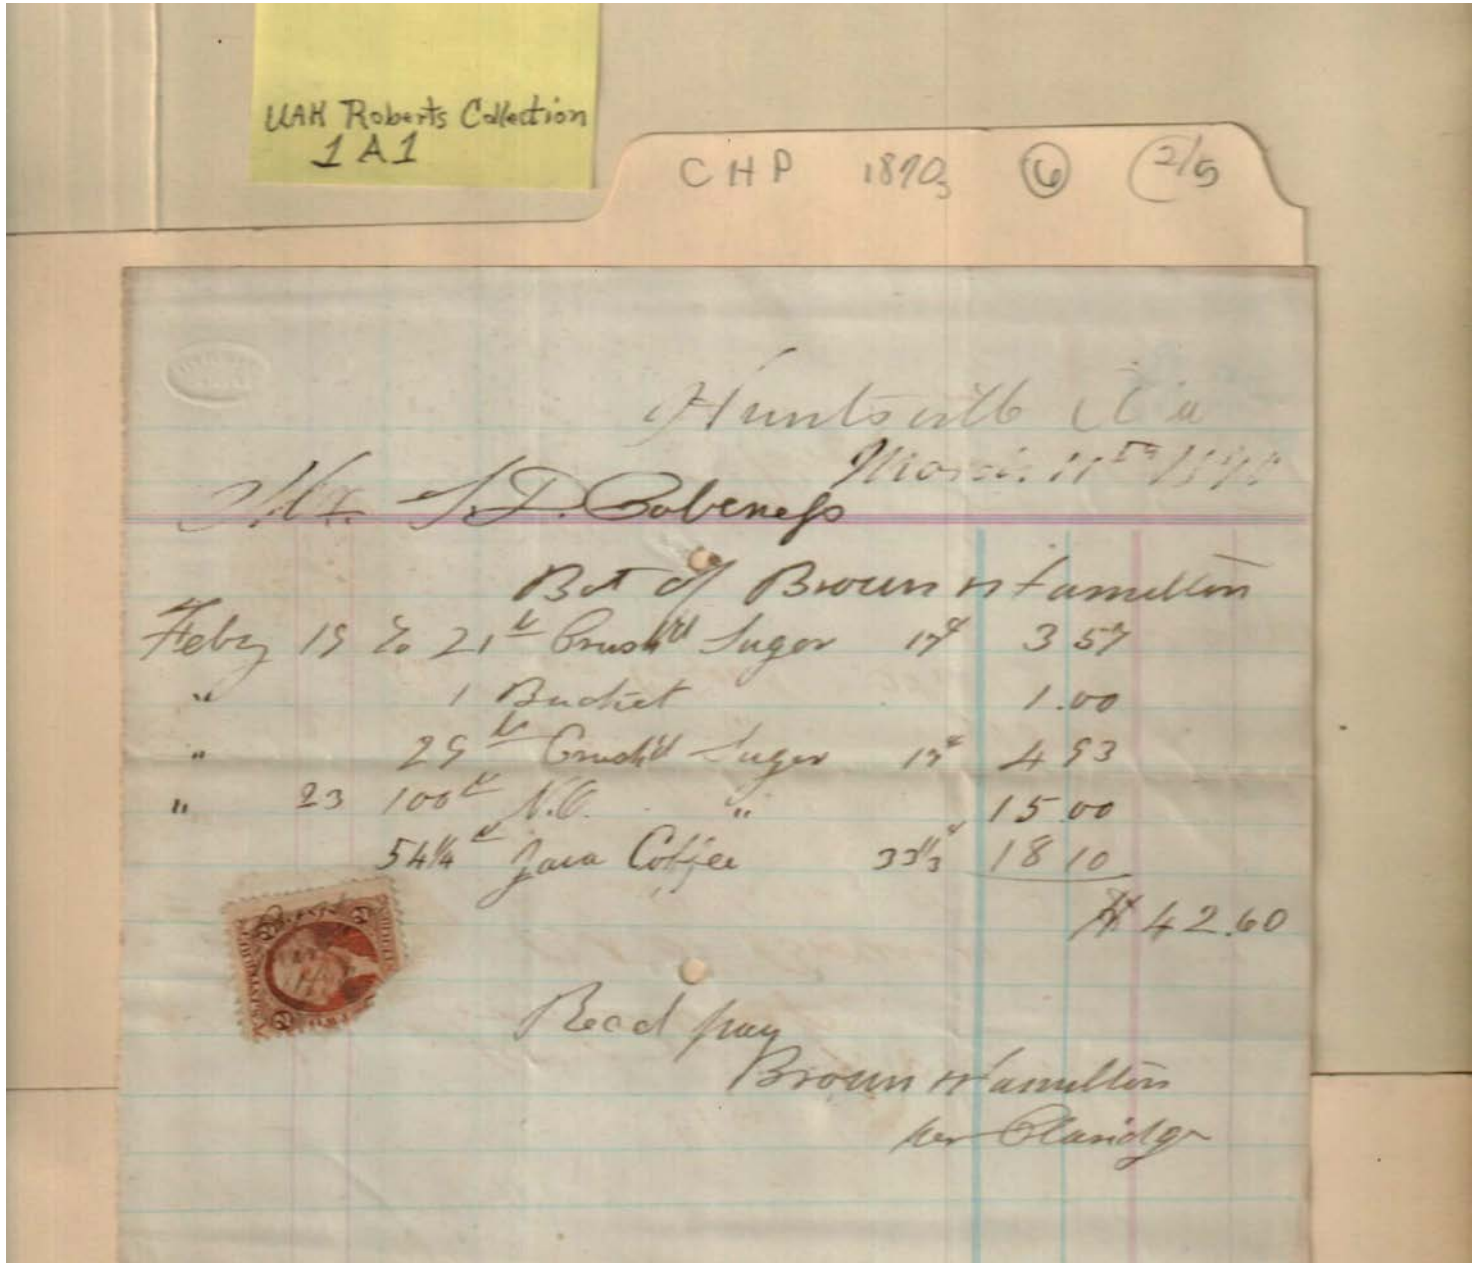 UAH Roberts Collection
1A1
CHP 1870s 6 2/5
Huntsville Ala
March 11th 1870
Mr. S. D. Cabeness
Bot of Brown & Hamilton
Feby 19 To 21 lb Crush'd Sugar 17¢ 3 57
" 1 Bucket 1.00
" 29 lb Crush'd Sugar 17¢ 4 93
" 23 100 lb N.O. " 15.00
54 1/4 lb Java Coffee 33 1/3¢ 18 10
$42.60
Recd pay
Brown & Hamilton
per Claridge